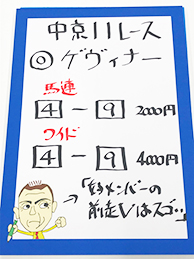 中京11レース
◎ゲヴィナー
馬連
4-9 2000円
ワイド
4-9 4000円
→「好メンバーの
前走Vはスゴ…」